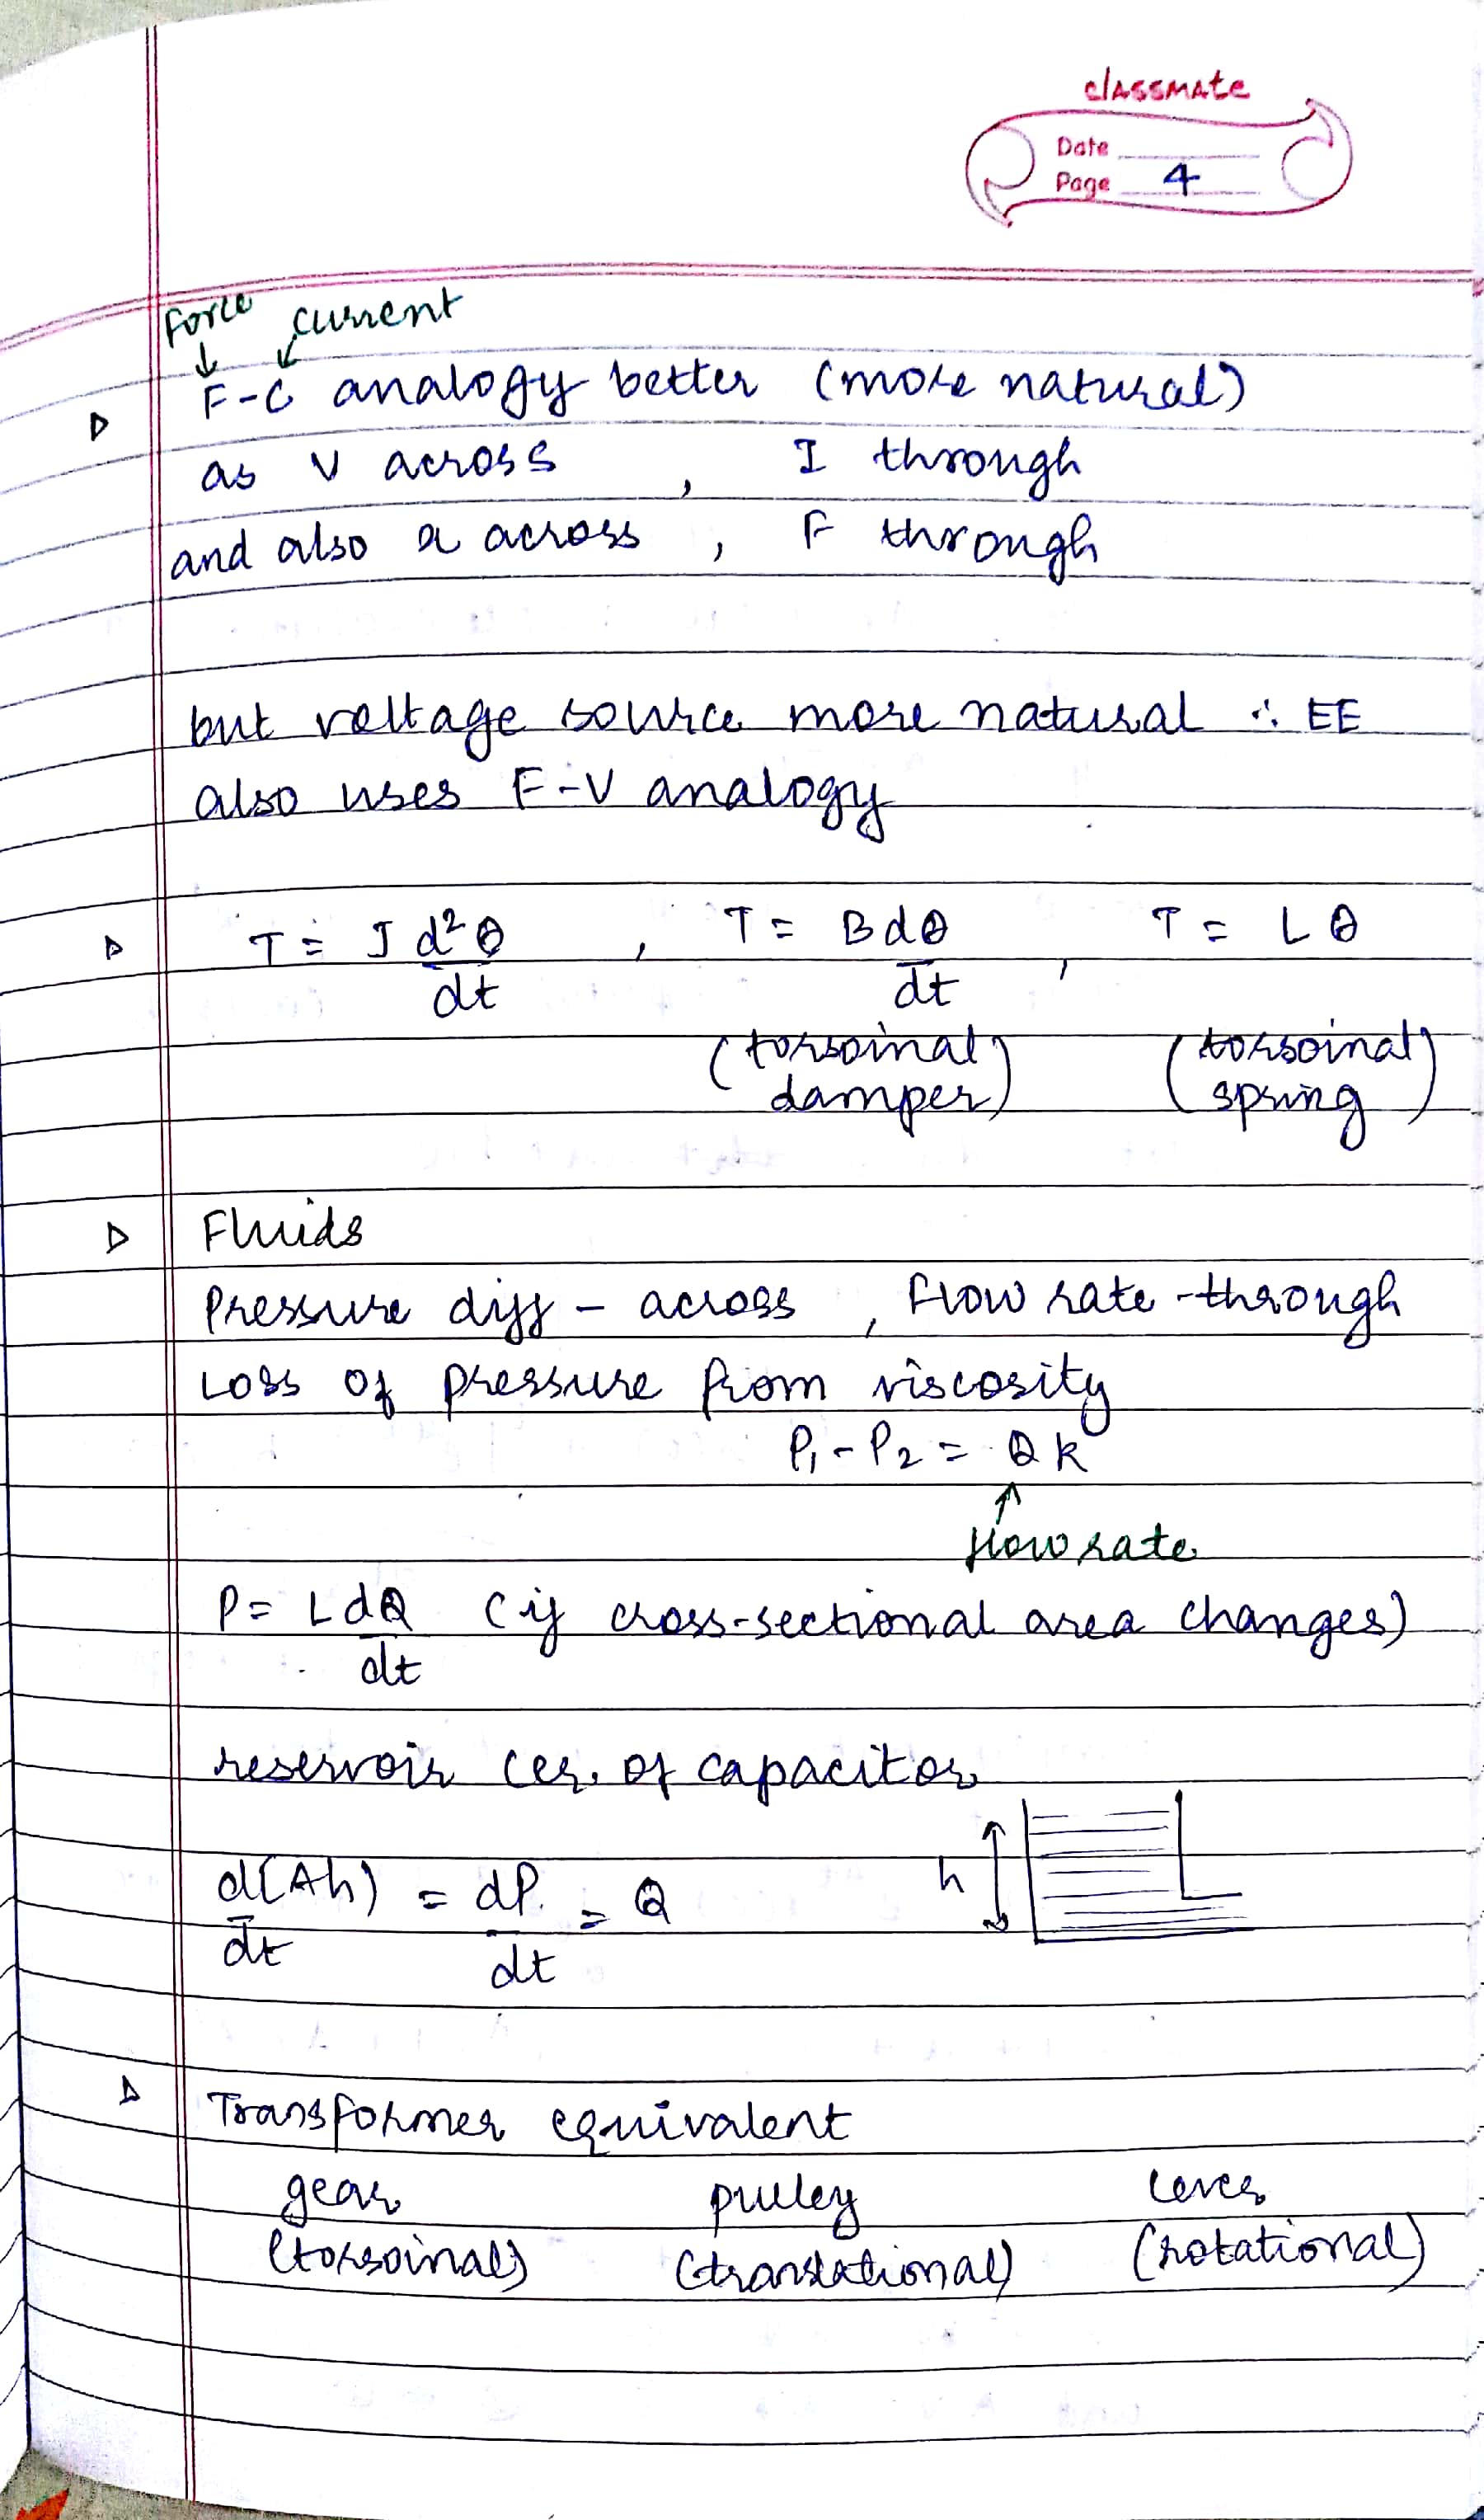 classmate
Date
Page 4
Force current
F-C analogy better (more natural)
as V across , I through
and also a across , F through
but voltage source more natural ∴ EE
also uses F-V analogy
T = J d²θ/dt , T = B dθ/dt , T = L θ
(torsoinal damper) (torsoinal spring)
Fluids
Pressure diff - across , flow rate - through
Loss of pressure from viscosity
P₁ - P₂ = Q k
flow rate
P = L dQ/dt (if cross-sectional area changes)
reservoir (eq. of capacitor
d(Ah)/dt = dP/dt = Q
h
Transformer equivalent
gear pulley lever
(torsoinal) (translational) (rotational)